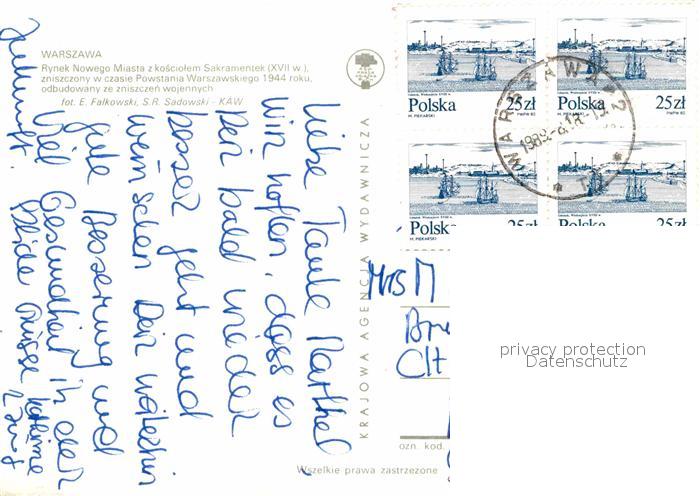 WARSZAWA
Rynek Nowego Miasta z kościołem Sakramentek (XVII w.),
zniszczony w czasie Powstania Warszawskiego 1944 roku,
odbudowany ze zniszczeń wojennych
fot. E. Falkowski, S.R. Sadowski - KAW
Liebe Tante
wir hoffen, dass es
Dir bald wieder
besser geht und
wünschen Dir weiterhin
gute Besserung und
viel Gesundheit in der
Zukunft.
Grüsse
KRAJOWA AGENCJA WYDAWNICZA
Polska 25zł
M. PIEKARSKI PWPW 82
Polska 25zł
M. PIEKARSKI PWPW 82
Polska 25zł
M. PIEKARSKI
Polska 25zł
WARSZAWA 2
Mrs M
ozn. kod.
Wszelkie prawa zastrzeżone
privacy protection
Datenschutz